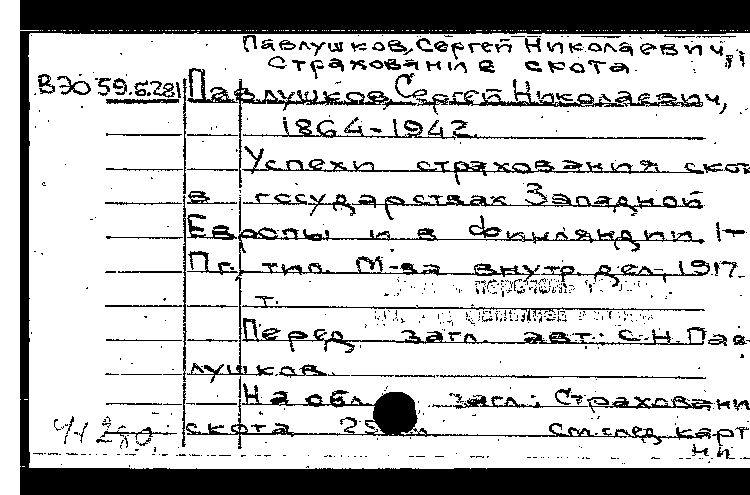 Павлушков, Сергей Николаевич,
Страхованiе скота
ВЭО 59.6.281 Павлушков, Сергей Николаевич,
1864-1942.
Успехи страхования скот
в государствах Западной
Европы и в Финляндии. 1-
Пг., тип. М-ва внутр. дел, 1917
т.
Перед загл. авт.: С.Н. Пав-
лушков.
На обл. загл.: Страховани
скота 25
См. след. карт